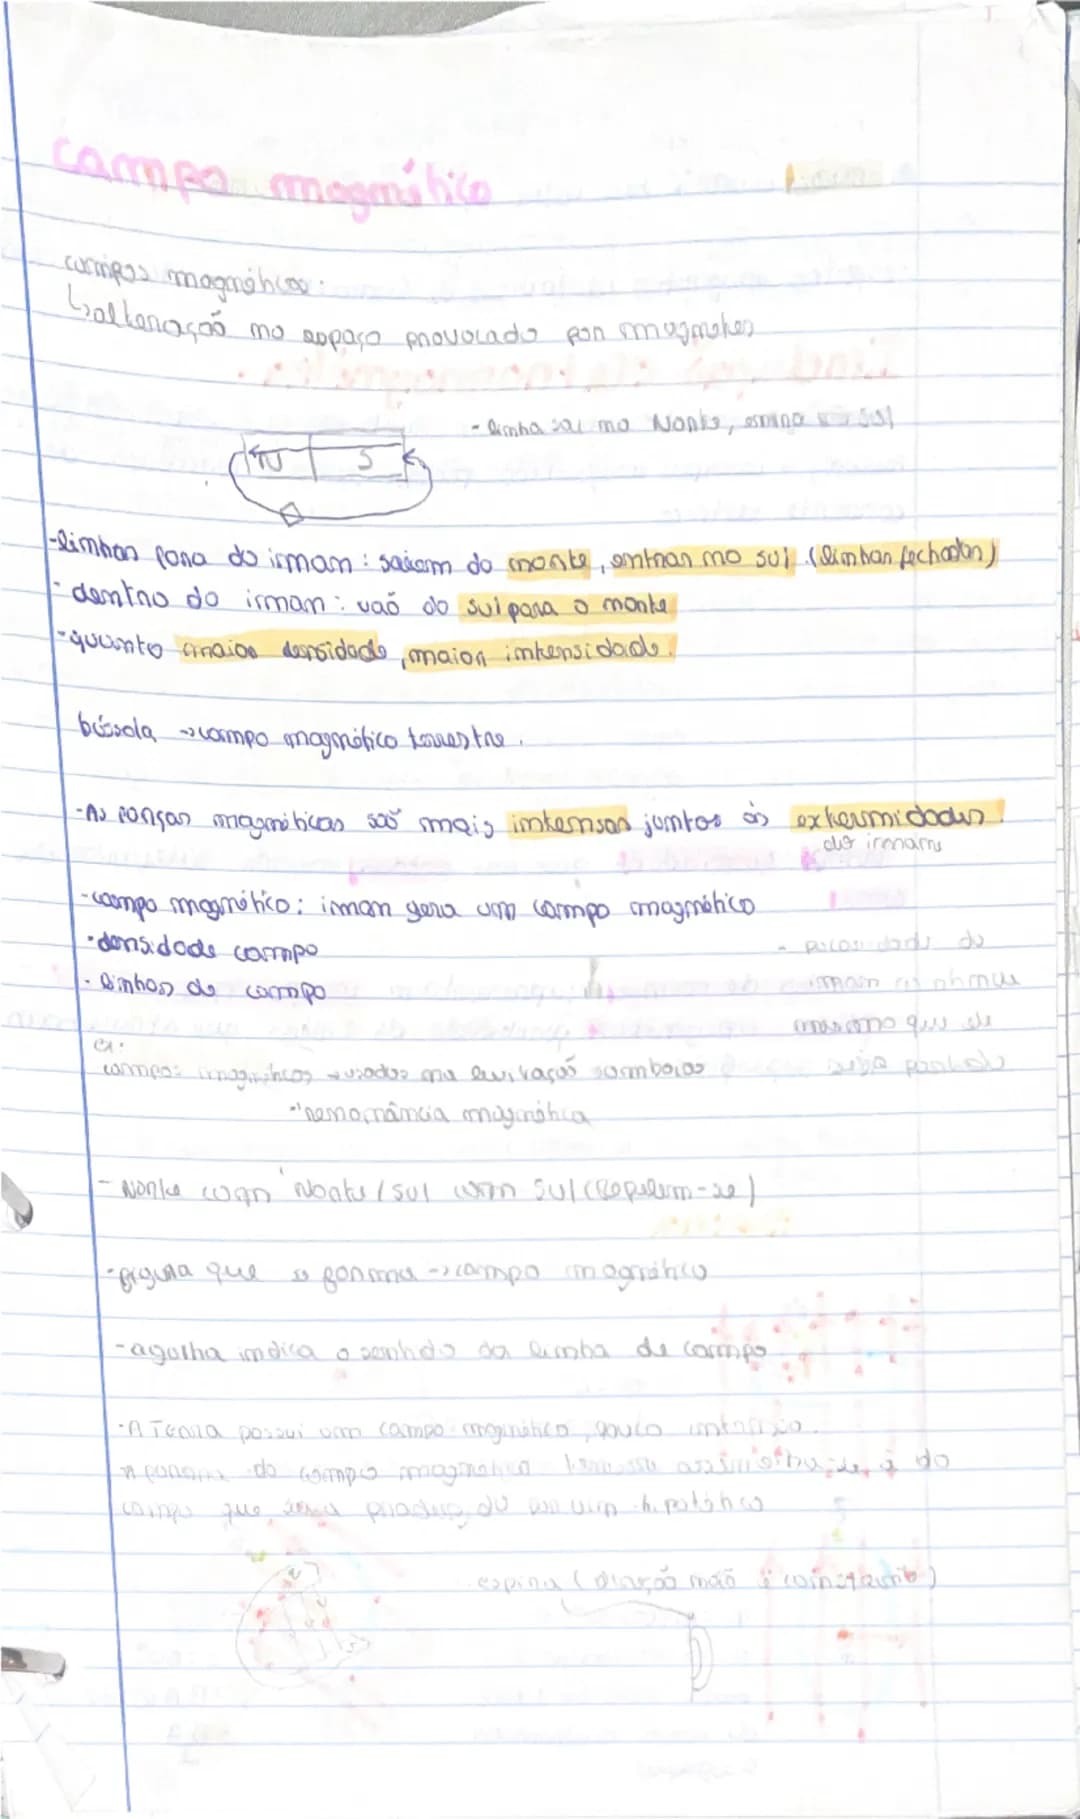 campo magnético
campos magnéticos:
↳alteração no espaço provocado por magnetes
- linha sai no Norte, entra no sul
N S
-linhas fora do iman: saiem do norte, entran no sul. (linhas fechadas)
- dentro do iman: vão do sul para o norte
-quanto maior densidade, maior intensidade.
bússola → campo magnético terrestre.
-As forças magnéticas são mais intensas juntos às extermidades
do iman
-campo magnético: iman gera um campo magnético
·densidade campo
- linhas de campo
iman
mesmo que
ex:
campos magnéticos → usados na levitação comboios
→ressonância magnética
- Norte com Norte / sul com sul (Repelem-se)
-figura que se forma → campo magnético
-agulha indica o sentido da linha de campo
-A Terra possui um campo magnético, pouco intenso.
do campo magnético assimethu-se, à do
campo que hipotético
espira (direção não é constante)